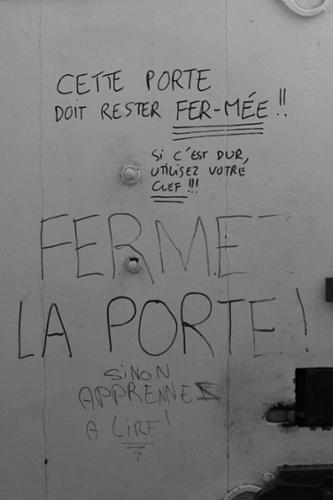 CETTE PORTE
DOIT RESTER FER-MÉE !!
SI C'EST DUR,
UTILISEZ VOTRE
CLEF !!!
FERMEZ
LA PORTE !
SINON
APPRENNEZ
A LIRE !